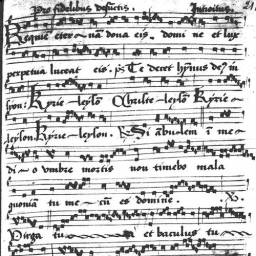 Pro fidelibus defūctis. Introitus. 21
Requiē eter nā dona eis, domi ne et lux
perpetua luceat eis. ps Te decet hymnus de9 in
syon: Kyrie leyson Christe leyson Kyrie
leyson. Kyrie leyson. R Si ābulem ī me
di o vmbre mortis non timebo mala
quoniā tu me cū es domine. V.
Virga tu a et baculus tu